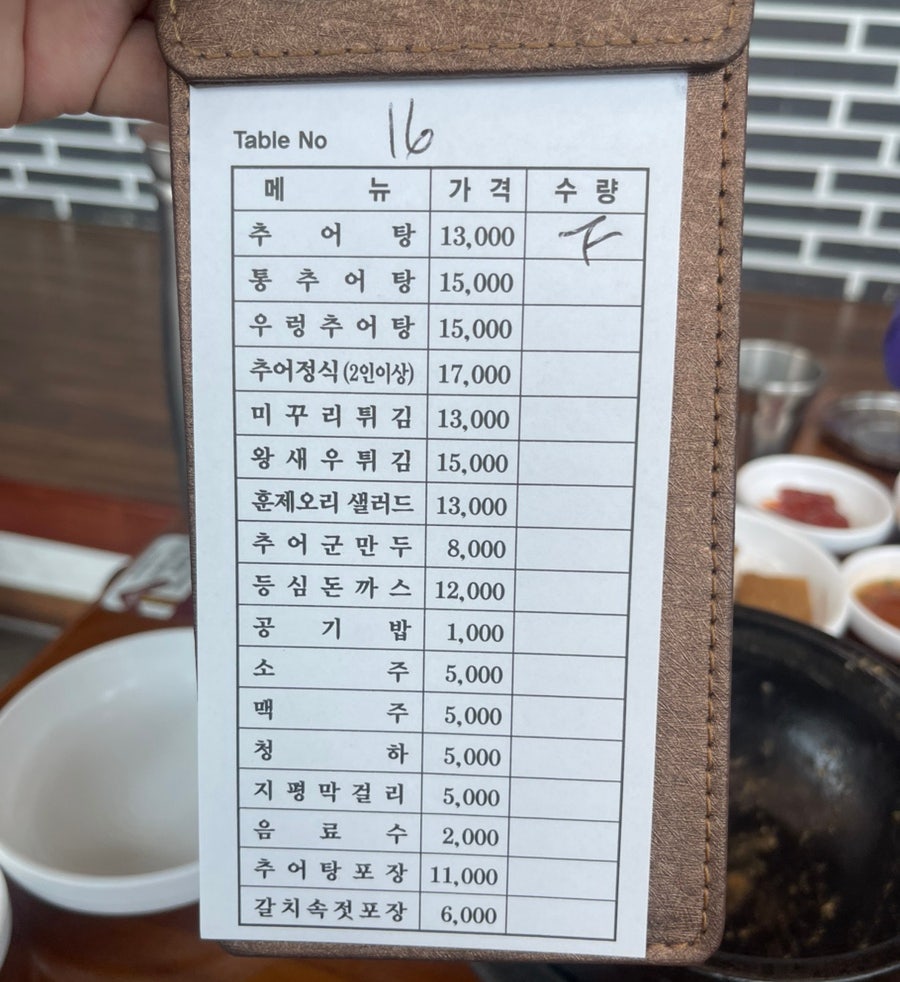 Table No 16
메뉴 가격 수량
추어탕 13,000 𠂉
통추어탕 15,000
우렁추어탕 15,000
추어정식(2인이상) 17,000
미꾸리튀김 13,000
왕새우튀김 15,000
훈제오리 샐러드 13,000
추어군만두 8,000
등심돈까스 12,000
공기밥 1,000
소주 5,000
맥주 5,000
청하 5,000
지평막걸리 5,000
음료수 2,000
추어탕포장 11,000
갈치속젓포장 6,000